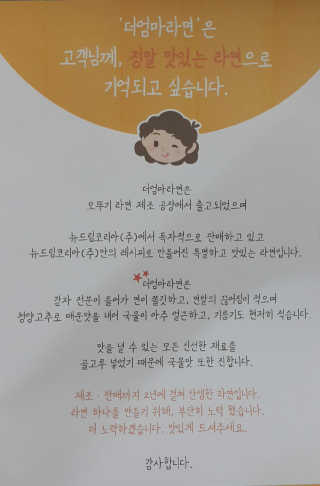 '더엄마라면'은
고객님께, 정말 맛있는 라면으로
기억되고 싶습니다.
더엄마라면은
오뚜기 라면 제조 공장에서 출고되었으며
뉴드림코리아(주)에서 독자적으로 판매하고 있고
뉴드림코리아(주)만의 레시피로 만들어진 특별하고 맛있는 라면입니다.
더엄마라면은
감자 전분이 들어가 면이 쫄깃하고, 면발의 끊어짐이 적으며
청양고추로 매운맛을 내어 국물이 아주 얼큰하고, 기름기도 현저히 적습니다.
맛을 낼 수 있는 모든 신선한 재료를
골고루 넣었기 때문에 국물맛 또한 진합니다.
제조·판매까지 2년에 걸쳐 탄생한 라면입니다.
라면 하나를 만들기 위해, 부단히 노력 했습니다.
더 노력하겠습니다. 맛있게 드셔주세요.
감사합니다.